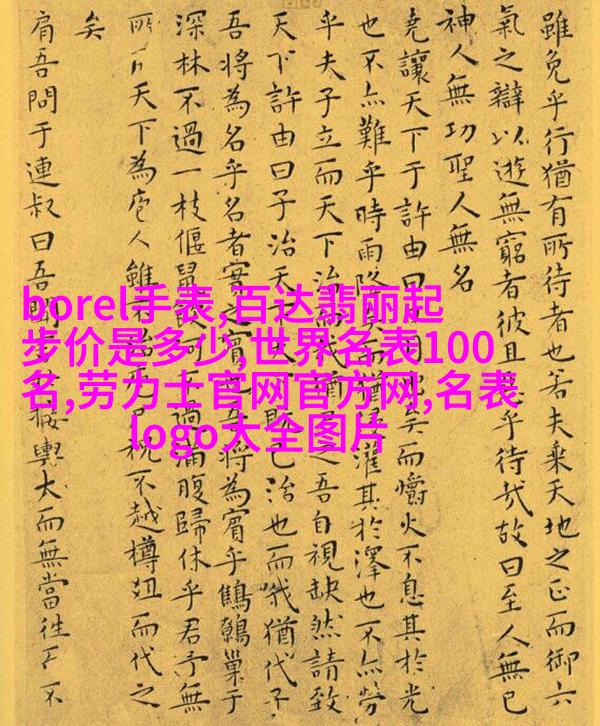 雖免乎行猶有所待者也若夫乘天地之正而御六
氣之辯以遊無窮者彼且惡乎待哉故曰至人無己
神人無功聖人無名
堯讓天下于許由曰矣而爝火不息其於光
也不亦難乎時雨降矣而猶浸灌其於澤也不亦勞
乎夫子立而天下治之吾自視缺然請致
天下許由曰子治天下既已治也而我猶代子
吾將為名乎名者實之賓也吾將為賓乎鷦鷯巢于
深林不過一枝偃鼠飲河不過滿腹歸休乎君予無
所天下為庖人雖不治庖祝不越樽俎而代之
矣
肩吾問于連叔曰吾聞接輿大而無當往而不
borel手表,百达翡丽起
步价是多少,世界名表100
名,劳力士官网官方网,名表
logo大全图片